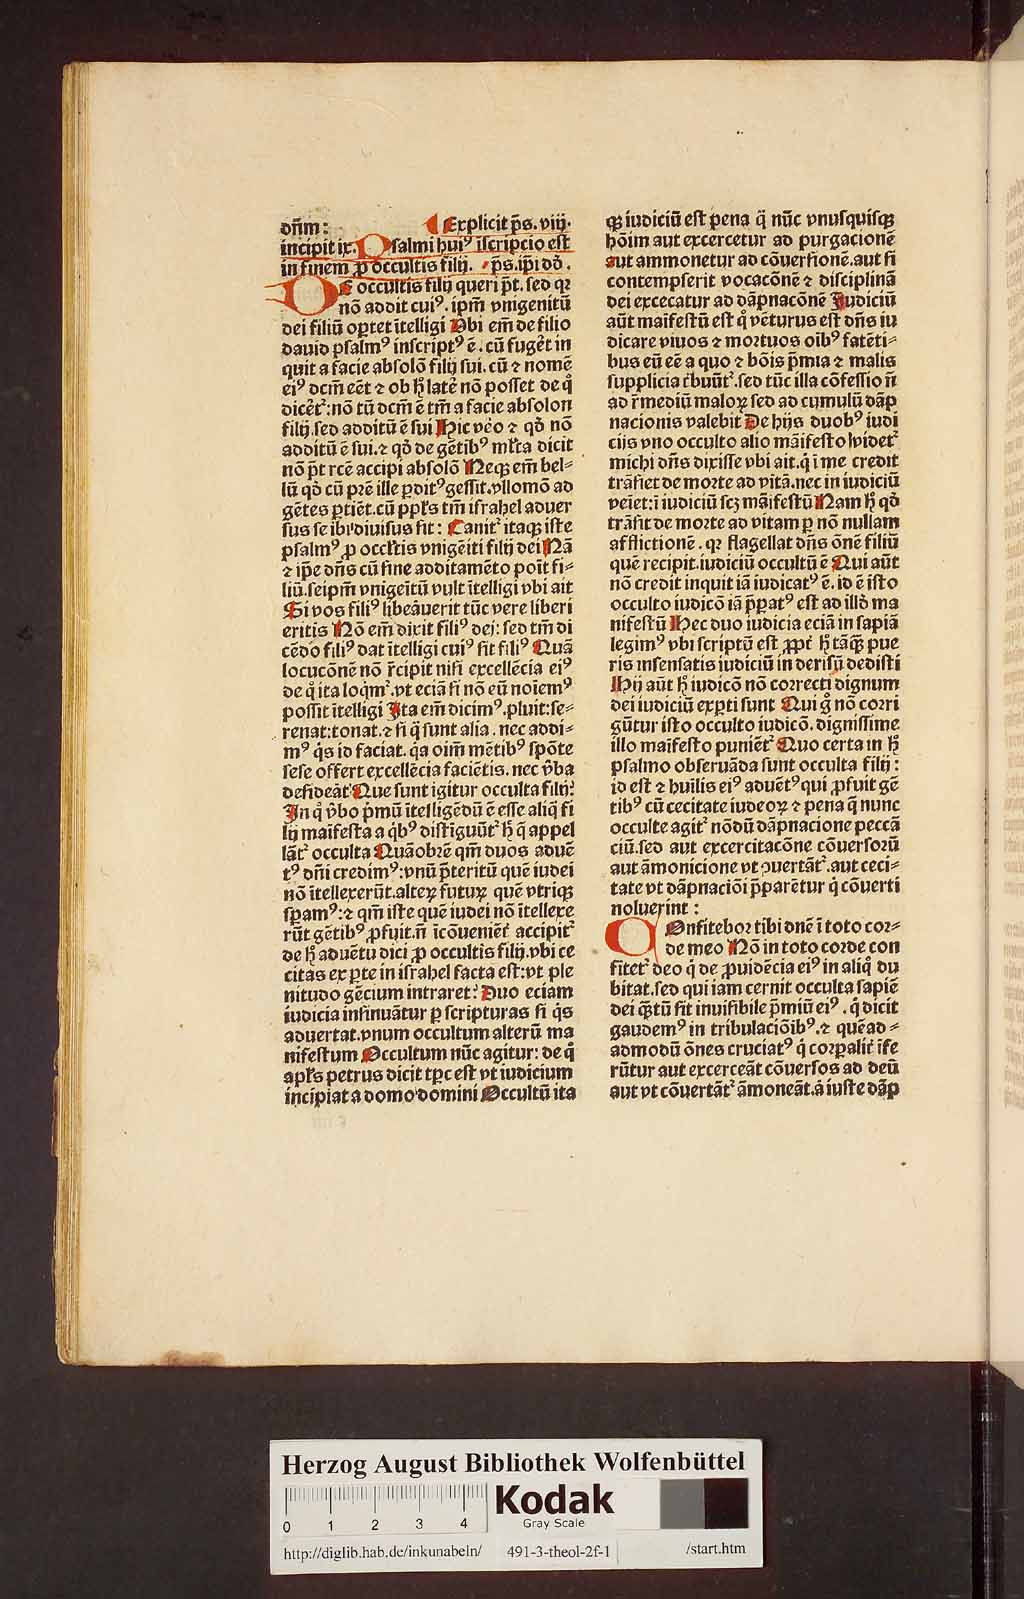 dñm: Explicit p̃s. viij.
incipit ix. Psalmi huiꝰ iscripcio est
in finem ꝓ occultis filij. p̃s. ip̃i dd̃.
DE occultis filij queri p̃t. sed qꝛ
nõ addit cuiꝰ. ip̃m vnigenitũ
dei filiũ oꝑtet ĩtelligi Vbi em̃ de filio
dauid psalmꝰ inscriptꝰ ẽ. cũ fugẽt in
quit a facie absolõ filij sui. cũ ⁊ nomẽ
eiꝰ dcm̃ eẽt ⁊ ob h̷ latẽ nõ posset de q̃
dicẽtꝛ: nõ tñ dcm̃ ẽ tm̃ a facie absolon
filij. sed additũ ẽ sui Hic ṽo ⁊ qd̃ nõ
additũ ẽ sui. ⁊ qd̃ de gẽtibꝰ ml̃ta dicit
nõ p̃t rcẽ accipi absolõ Neqꝫ em̃ bel⸗
lũ qd̃ cũ p̃rẽ ille ꝑditꝰ gessit. vllomõ ad
gẽtes ꝑtiẽt. cũ pp̃l̃s tm̃ israhel aduer
sus se ibi diuisus sit: Canitꝛ itaqꝫ iste
psalmꝰ ꝓ occl̃tis vnigẽiti filij dei Nã
⁊ ip̃e dñs cũ sine additamẽto poĩt fi⸗
liũ. seip̃m vnigeĩtũ vult ĩtelligi vbi ait
Si vos filiꝰ libeãuerit tũc vere liberi
eritis Nõ em̃ dixit filiꝰ dei: sed tm̃ di
cẽdo filiꝰ dat ĩtelligi cuiꝰ sit filiꝰ Quã
locucõnẽ nõ r̃cipit nisi excellẽcia eiꝰ
de q̃ ita loqm̃ꝛ. vt eciã si nõ eũ noĩemꝰ
possit ĩtelligi Ita em̃ dicimꝰ. pluit: se⸗
renat: tonat. ⁊ si q̃ sunt alia. nec addi⸗
mꝰ q̃s id faciat. q̃a oĩm mẽtibꝰ spõte
sese offert excellẽcia faciẽtis. nec ṽba
desideãt Que sunt igitur occulta filij:
In q̃ ṽbo p̃mũ ĩtelligẽdũ ẽ esse aliq̃ fi
lij maĩfesta a q̃bꝰ distĩguũtꝛ h̷ q̃ appel
lãtꝛ occulta Quãobrẽ qm̃ duos aduẽ
tꝰ dñi credimꝰ: vnũ p̃teritũ quẽ iudei
nõ ĩtellexerũt. alteꝝ futuꝝ quẽ vtriqꝫ
sp̃amꝰ: ⁊ qm̃ iste quẽ iudei nõ ĩtellexe
rũt gẽtibꝰ ꝓfuit. ñ ĩcõueniẽt̃ accipitꝛ
de h̷ aduẽtu dici ꝓ occultis filij. vbi ce
citas ex ꝑte in israhel facta est: vt ple
nitudo gẽcium intraret: Duo eciam
iudicia insinuãtur ꝑ scripturas si q̃s
aduertat. vnum occultum alterũ ma
nifestum Occultum nũc agitur: de q̃
apl̃s petrus dicit tp̃c est vt iudicium
incipiat a domo domini Occultũ ita
qꝫ iudiciũ est pena q̃ nũc vnusquisqꝫ
hoĩm aut excercetur ad purgacionẽ
aut ammonetur ad cõuersionẽ. aut si
contempserit vocacõnẽ ⁊ disciplinã
dei excecatur ad dãpnacõnẽ Iudiciũ
aũt maĩfestũ est q̃ vẽturus est dñs iu
dicare viuos ⁊ mortuos oĩbꝰ fatẽti⸗
bus eũ eẽ a quo ⁊ bõis p̃mia ⁊ malis
supplicia t̃buũtꝛ. sed tũc illa cõfessio ñ
ad r̃mediũ maloꝝ sed ad cumulũ dãp
nacionis valebit De hijs duobꝰ iudi
cijs vno occulto alio mãifesto videtꝛ
michi dñs dixisse vbi ait. q̃ ĩ me credit
trãsiet de morte ad vitã. nec in iudiciũ
veĩet: ĩ iudiciũ scꝫ mãifestũ Nam h̷ qd̃
trãsit de morte ad vitam ꝑ nõ nullam
afflictionẽ. qꝛ flagellat dñs õnẽ filiũ
quẽ recipit. iudiciũ occultũ ẽ Qui aũt
nõ credit inquit iã iudicatꝰ ẽ. id ẽ isto
occulto iudicõ iã p̃ꝑatꝰ est ad illd̃ ma
nifestũ Hec duo iudicia eciã in sapiã
legimꝰ vbi scriptũ est ꝓpt̃ h̷ tãqꝫ pue
ris insensatis iudiciũ in derisũ dedisti
Hij aũt h̷ iudicõ nõ correcti dignum
dei iudiciũ exꝑti sunt Qui g̃ nõ corri
gũtur isto occulto iudicõ. dignissime
illo maĩfesto puniẽtꝛ Quo certa in h̷
psalmo obseruãda sunt occulta filij:
id est ⁊ huĩlis eiꝰ aduẽtꝰ qui ꝓfuit gẽ
tibꝰ cũ cecitate iudeoꝝ ⁊ pena q̃ nunc
occulte agitꝛ nõdũ dãpnacione peccã
ciũ. sed aut excercitacõne cõuersorũ
aut ãmonicione vt ꝯuertãtꝛ. aut ceci⸗
tate vt dãpnaciõi p̃parẽtur q̃ cõuerti
noluerint:
COnfitebor tibi dnẽ ĩ toto cor⸗
de meo Nõ in toto corde con
fitetꝛ deo q̃ de ꝓuidẽcia eiꝰ in aliq̃ du
bitat. sed qui iam cernit occulta sapiẽ
dei q̃ꝫtũ sit inuisibile p̃miũ eiꝰ. q̃ dicit
gaudemꝰ in tribulaciõibꝰ. ⁊ quẽad⸗
admodũ õnes cruciatꝰ q̃ corꝑalit̃ ĩfe
rũtur aut excerceãt cõuersos ad deũ
aut vt cõuertãtꝛ ãmoneãt. ã iuste dãp
Herzog August Bibliothek Wolfenbüttel
0 1 2 3 4
Kodak
Gray Scale
http://diglib.hab.de/inkunabeln/ 491-3-theol-2f-1 /start.htm